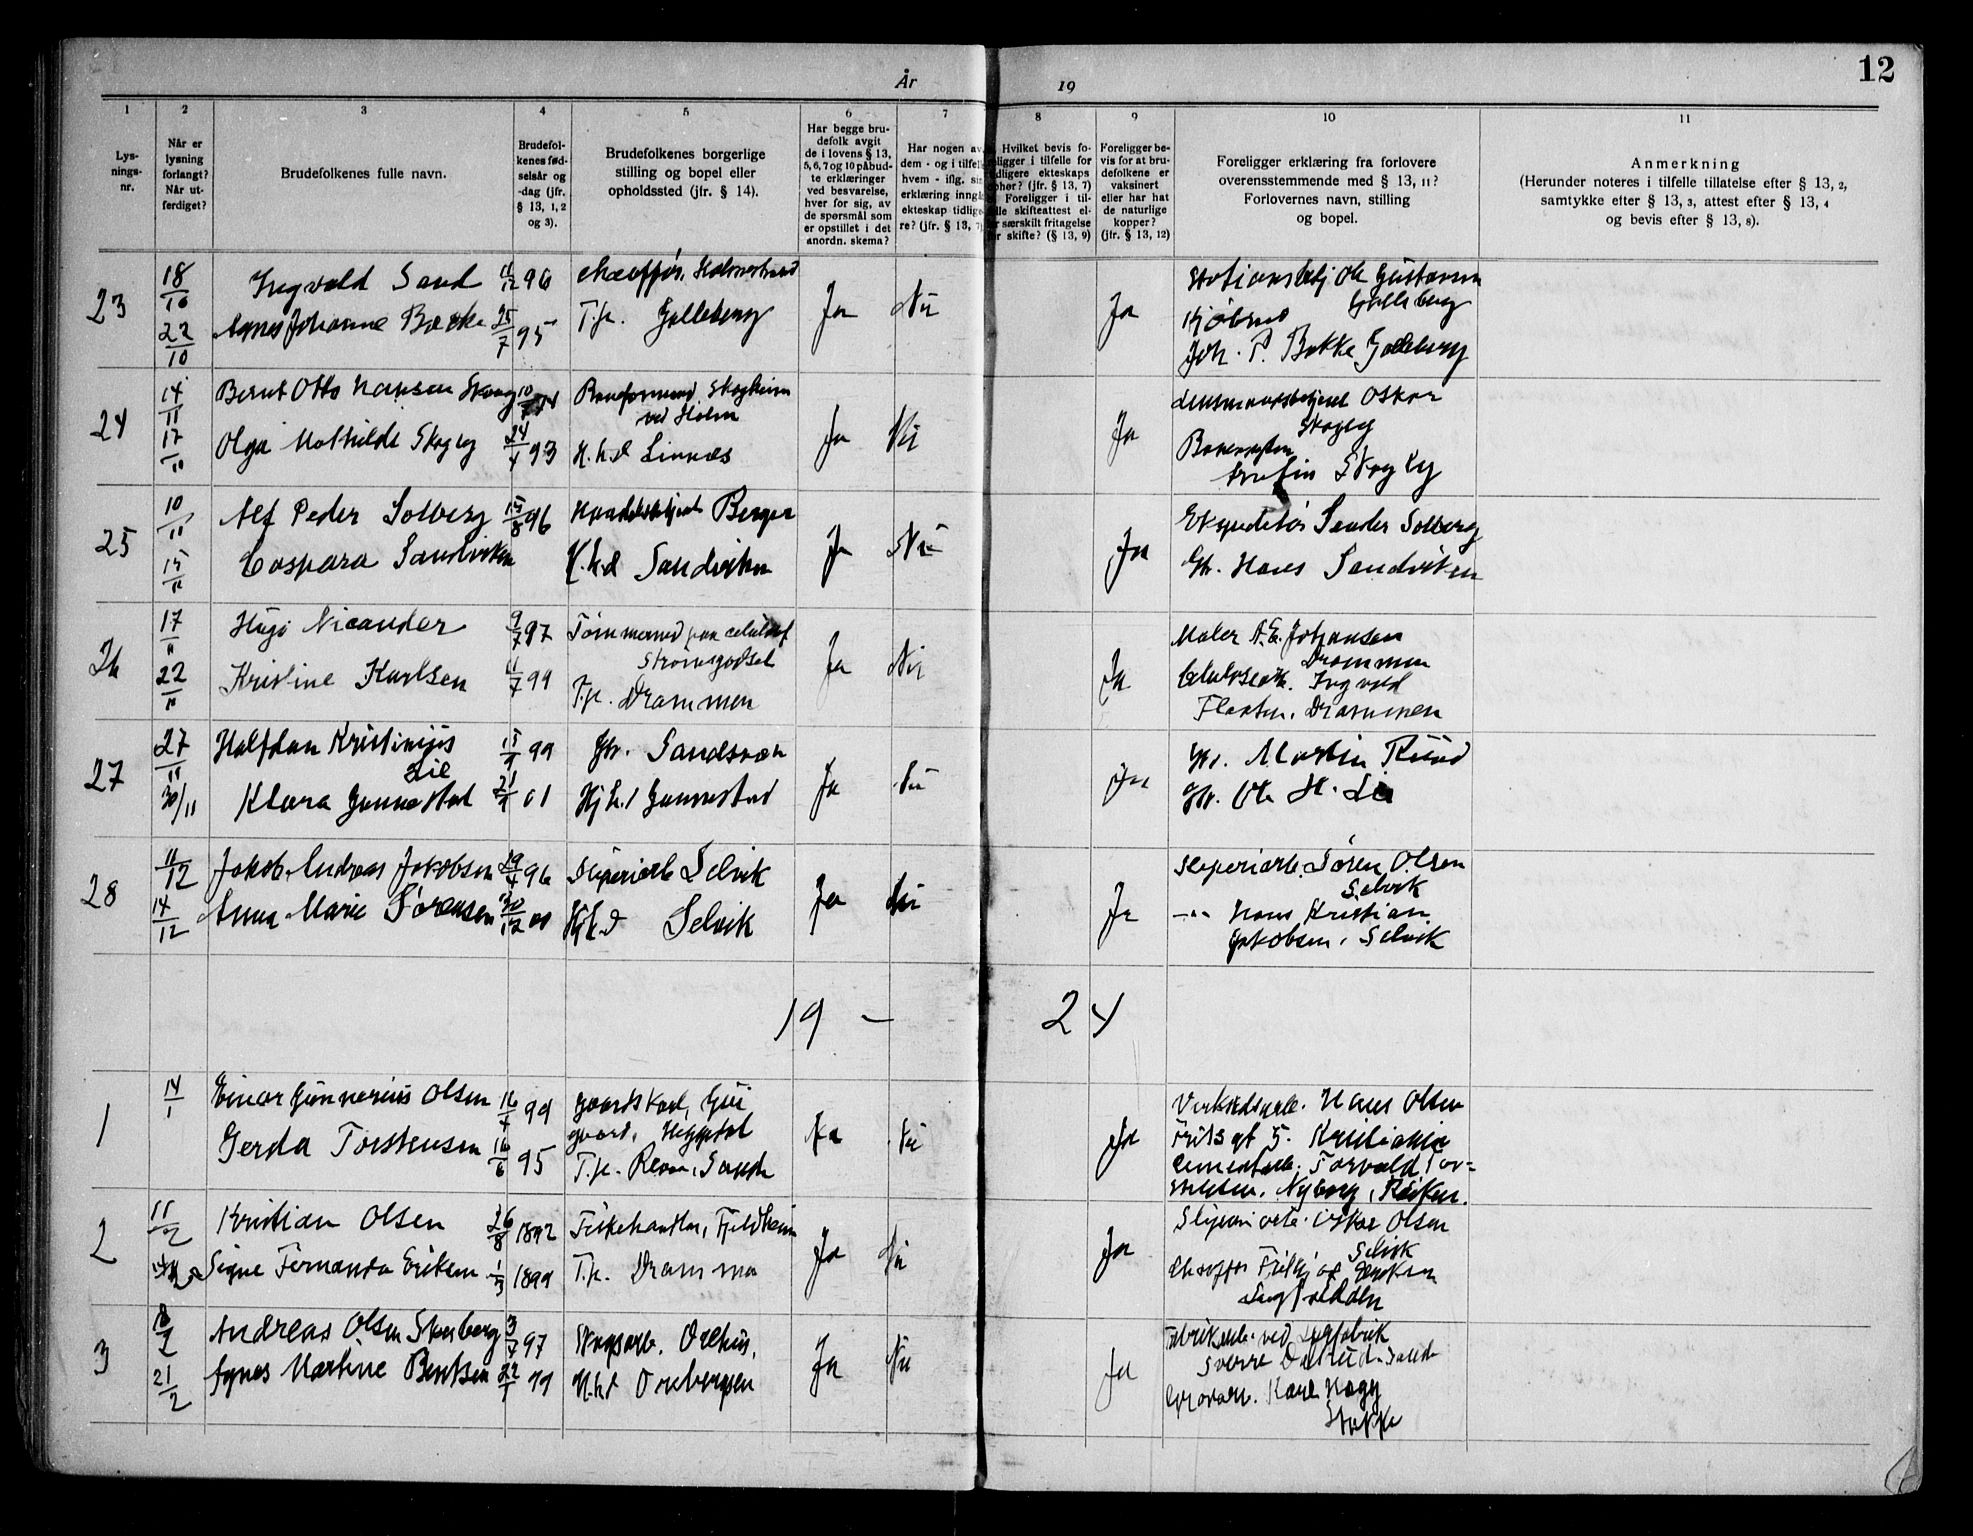 År 19
12
1 2 3 4 5 6 7 8 9 10 11
Lys-
nings-
nr.
Når er
lysning
forlangt?
Når ut-
ferdiget?
Brudefolkenes fulle navn.
Brudefol-
kenes fød-
selsår og
-dag (jfr.
§ 13, 1, 2
og 3).
Brudefolkenes borgerlige
stilling og bopel eller
opholdssted (jfr. § 14).
Har begge bru-
defolk avgit
de i lovens § 13,
5, 6, 7 og 10 påbud-
te erklæringer
ved besvarelse,
hver for sig, av
de spørsmål som
er opstillet i det
anordn. skema?
Har nogen av
dem - og i tilfel
hvem - iflg. sin
erklæring inngå
ekteskap tidlige
re? (jfr. § 13, 7)
Hvilket bevis fo-
religger i tilfelle for
tidligere ekteskaps
ophør? (jfr. § 13, 7)
Foreligger i til-
felle skifteattest el-
r særskilt fritagelse
or skifte? (§ 13, 9)
Foreligger be-
vis for at bru-
defolkene er
vaksinert
eller har hat
de naturlige
kopper?
(jfr. § 13, 12)
Foreligger erklæring fra forlovere
overensstemmende med § 13, 11?
Forlovernes navn, stilling
og bopel.
Anmerkning
(Herunder noteres i tilfelle tillatelse efter § 13, 2,
samtykke efter § 13, 3, attest efter § 13, 4
og bevis efter § 13, 8).
23 18/10 Ingvald Sand 11/12 96 Chauffør, Holmestrand Ja Nei Ja Stationsbetj Ole Gustavsen
Galleberg
22/10 Agnes Johanne Bakke 25/7 95 T.p. Galleberg Kjøbmd
Joh. P. Bakke Galleberg
24 14/11 Bernt Otto Hansen Skoog 10/7 Baneformand, Skogheim
ved Holm Ja Nei Ja Lensmandsbetjent Oskar
Skogly
17/11 Olga Mathilde Skogly 24/4 93 H.h.d Linnæs
Skogly
25 10/11 Alf Peder Solberg 15/8 96 Handelsbetjent Berger Ja Nei Ja Ekspeditør Sander Solberg
15/11 Caspara Sandviken H.h.d Sandviken Gbr. Hans Sandviken
26 17/11 Hugo Nicander 9/7 97 Tømmermand paa
Strømsgodset Ja Nei Ja Maler A.E. Johansen
Drammen
22/11 Kristine Karlsen 11/7 99 T.p. Drammen Ingvald
Drammen
27 27/11 Halfdan Kristinius
Lie 99 Gbr. Sandsvær Ja Nei Ja Gbr. Martin Ruud
30/11 Klara Gunnestad 01 Hj.h.d Gunnestad Gbr. Ole H. Lie
28 11/12 Jakob Andreas Jakobsen 29/4 96 Sliperiarb Selvik Ja Nei Ja Sliperiarb. Søren Olsen
Selvik
14/12 Anna Marie Sørensen 30/12 00 Hj.h.d Selvik -"- Hans Kristian
Jakobsen, Selvik
19 — 24
1 14/1 Einar Gunnerius Olsen 16/4 99 Gaardskarl,
gaard, Ja Nei Ja Verkstedsarb. Hans Olsen
5. Kristiania
Gerda Torstensen 16/6 95 T.p. Revaa, Sande Cementarb. Torvald Tor-
stensen, Nyborg, Røiken.
2 11/2 Kristian Olsen 26/8 1892 Fiskehandler, Fjeldheim Ja Nei Ja Sliperiarb. Oskar Olsen
Selvik
Signe Fernanda Eriksen 1/3 1899 T.p. Drammen Chauffør
3 18/2 Andreas Olsen Skarberg 3/4 97 Skogsarb. Ja Nei Ja Fabrikarb. ved
Sverre Sande
21/2 Agnes Martine Bentsen 22/1 99 H.h.d Karl